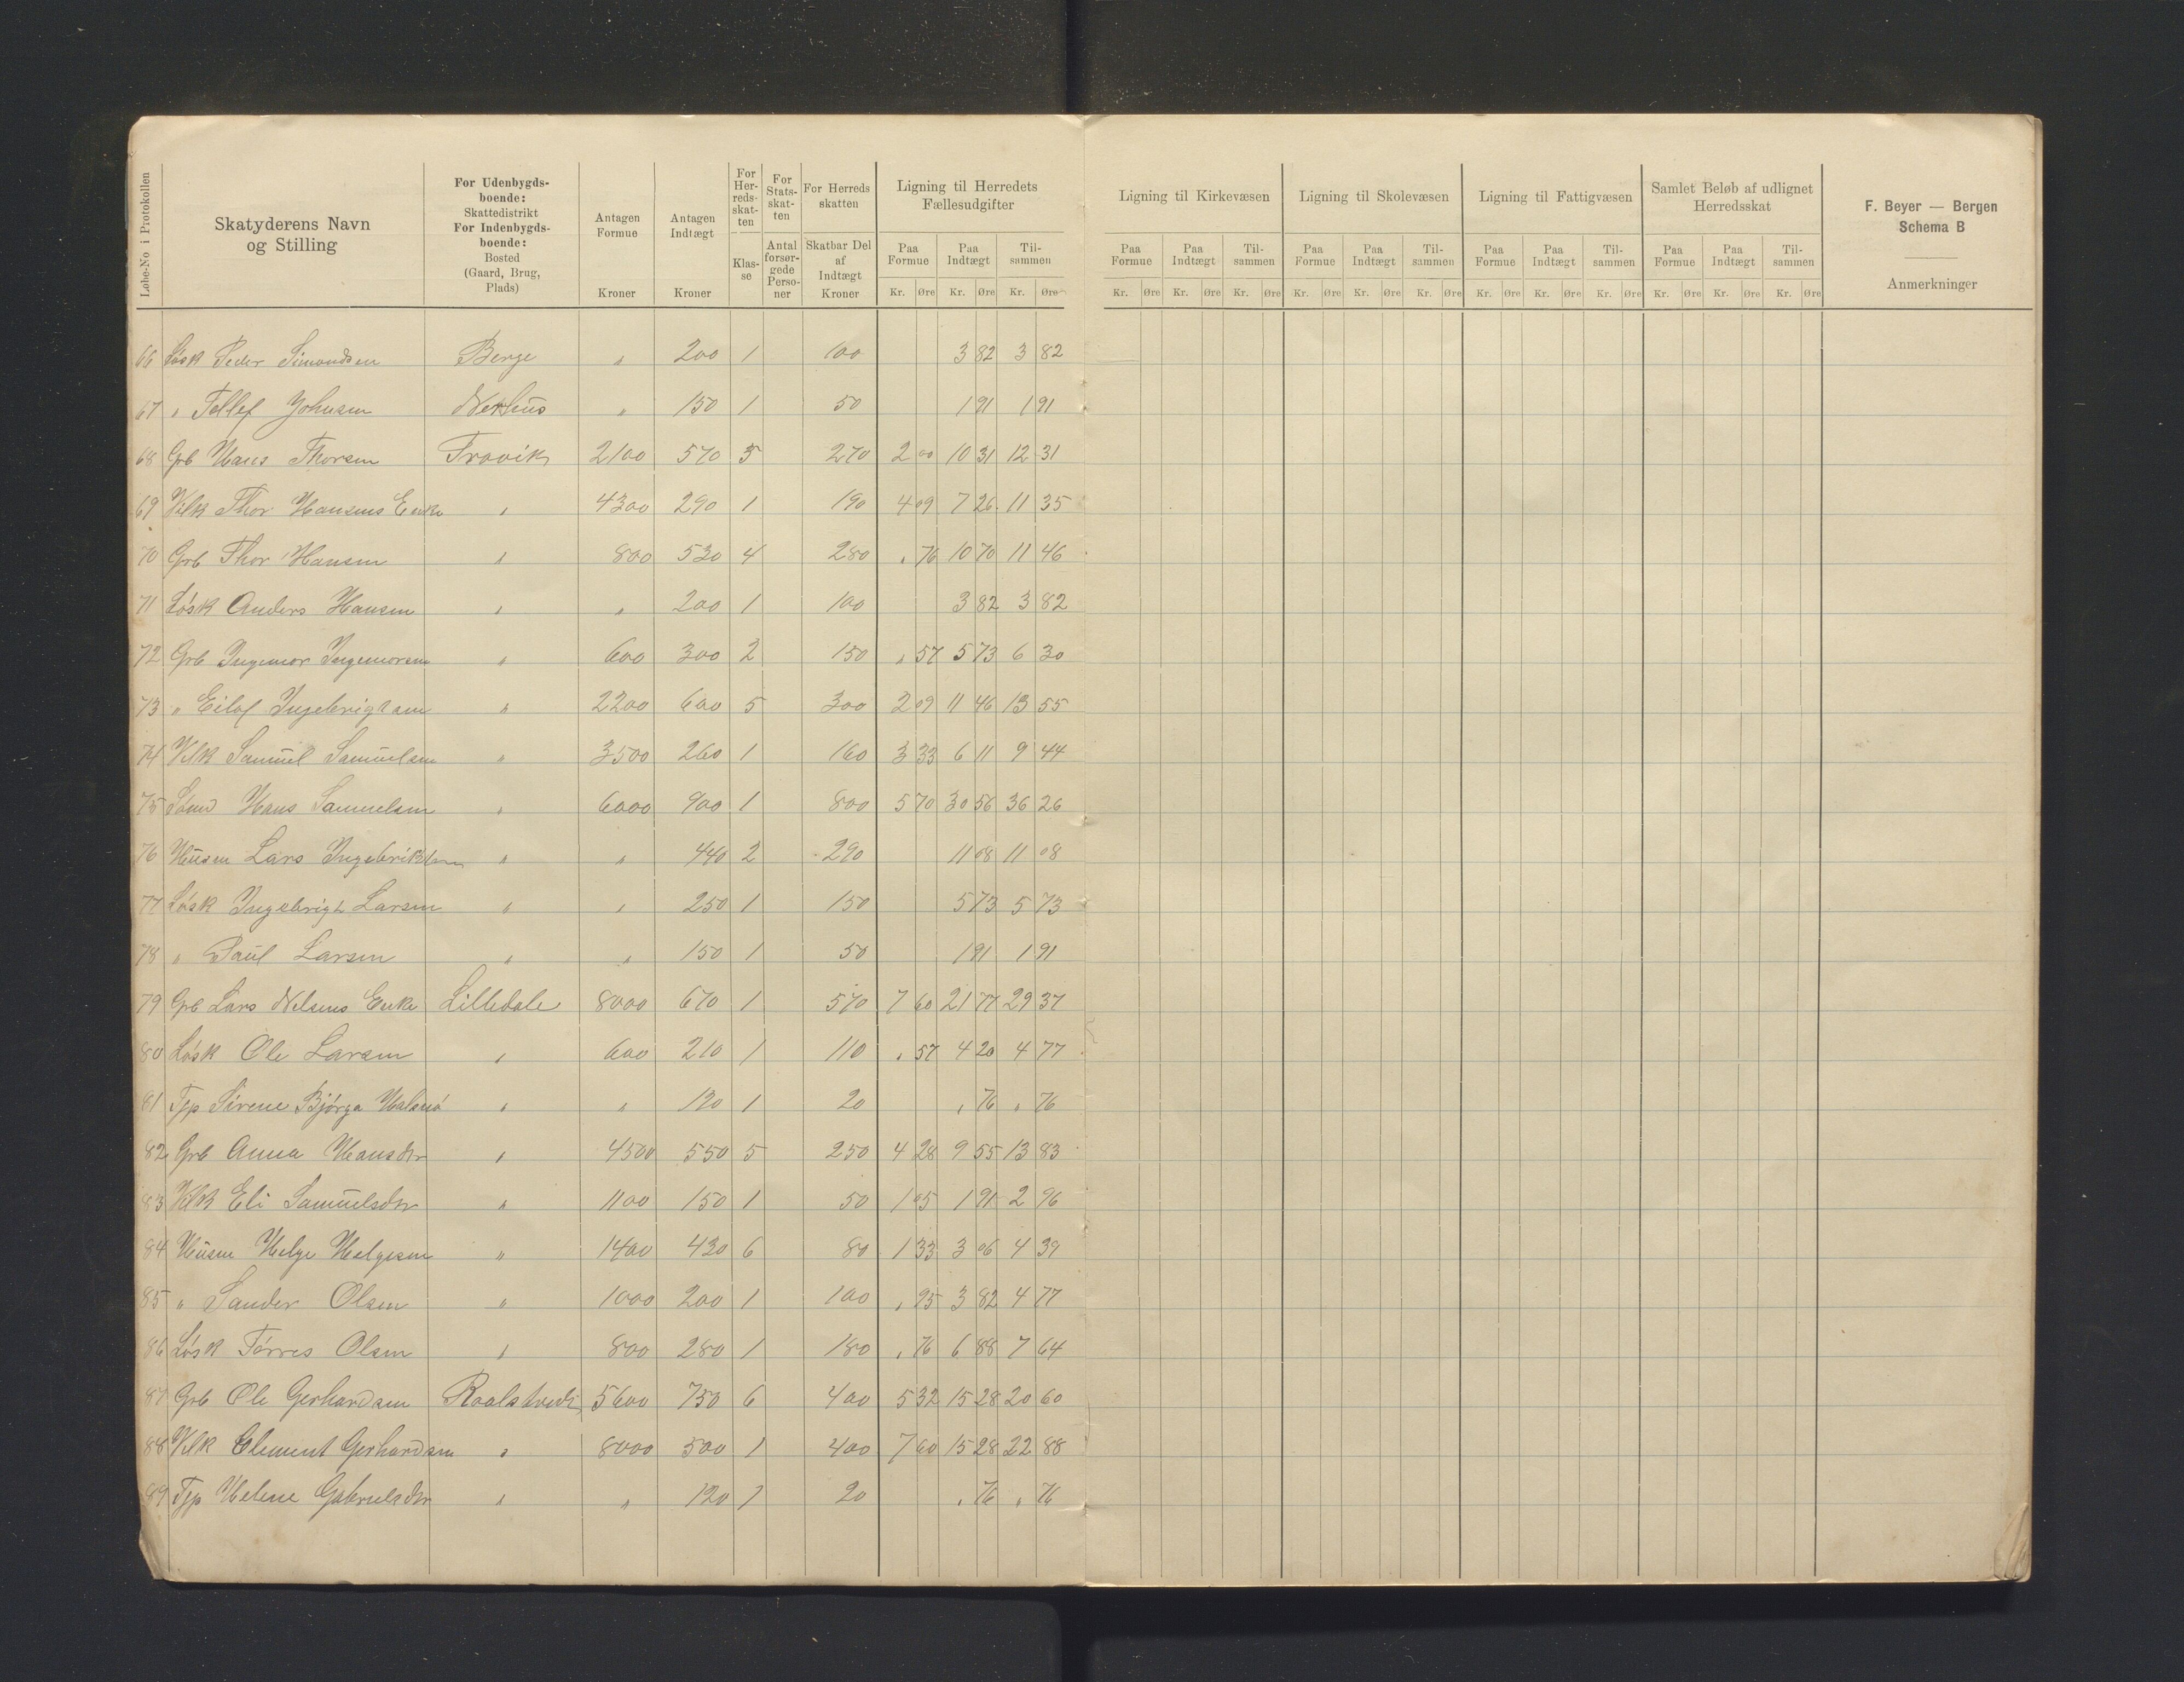 Løbe-No i Protokollen
Skatyderens Navn og Stilling
For Udenbygds-boende: Skattedistrikt For Indenbygds-boende: Bosted (Gaard, Brug, Plads)
Antagen Formue Kroner
Antagen Indtægt Kroner
For Her-reds-skat-ten Klas-se
For Stats-skat-ten Antal forsør-gede Perso-ner
For Herreds skatten Skatbar Del af Indtægt Kroner
Ligning til Herredets Fællesudgifter
Paa Formue Paa Indtægt Til-sammen
Kr. Øre Kr. Øre Kr. Øre
Ligning til Kirkevæsen
Paa Formue Paa Indtægt Til-sammen
Kr. Øre Kr. Øre Kr. Øre
Ligning til Skolevæsen
Paa Formue Paa Indtægt Til-sammen
Kr. Øre Kr. Øre Kr. Øre
Ligning til Fattigvæsen
Paa Formue Paa Indtægt Til-sammen
Kr. Øre Kr. Øre Kr. Øre
Samlet Beløb af udlignet Herredsskat
Paa Formue Paa Indtægt Til-sammen
Kr. Øre Kr. Øre Kr. Øre
F. Beyer — Bergen
Schema B
Anmerkninger
66 Løsk Peder Simondsen Berge " 200 1 100 3 82 3 82
67 " Tellef Johnsen Nerhus " 150 1 50 1 91 1 91
68 Grb Hans Thorsen Trovik 2100 570 5 270 2 00 10 31 12 31
69 Vilk Thor Hansens Enke " 4300 290 1 190 4 09 7 26 11 35
70 Grb Thor Hansen " 800 530 4 280 " 76 10 70 11 46
71 Løsk Anders Hansen " " 200 1 100 3 82 3 82
72 Grb Ingemor Ingemorsen " 600 300 2 150 " 57 5 73 6 30
73 " Eilof Ingebrigtsen " 2200 600 5 300 2 09 11 46 13 55
74 Vilk Samuel Samuelsen " 3500 260 1 160 3 33 6 11 9 44
75 Hans Samuelsen " 6000 900 1 800 5 70 30 56 36 26
76 Husm Lars Ingebriktsen " " 440 2 290 11 08 11 08
77 Løsk Ingebrigt Larsen " " 250 1 150 5 73 5 73
78 " Paul Larsen " " 150 1 50 1 91 1 91
79 Grb Lars Nelsens Enke Lilledale 8000 670 1 570 7 60 21 77 29 37
80 Løsk Ole Larsen " 600 210 1 110 " 57 4 20 4 77
81 Tjp Sirene Bjørga Halsnø " " 120 1 20 " 76 " 76
82 Grb Anna Hansdtr " 4500 550 5 250 4 28 9 55 13 83
83 Vilk Eli Samuelsdtr " 1100 150 1 50 1 05 1 91 2 96
84 Husm Helge Helgesen " 1400 430 6 80 1 33 3 06 4 39
85 " Sander Olsen " 1000 200 1 100 " 95 3 82 4 77
86 Løsk Tørres Olsen " 800 280 1 180 " 76 6 88 7 64
87 Grb Ole Gerhardsen 5600 750 6 400 5 32 15 28 20 60
88 Vilk Clement Gerhardsen " 8000 500 1 400 7 60 15 28 22 88
89 Tjp Helene Gabrielsdtr " " 120 1 20 " 76 " 76